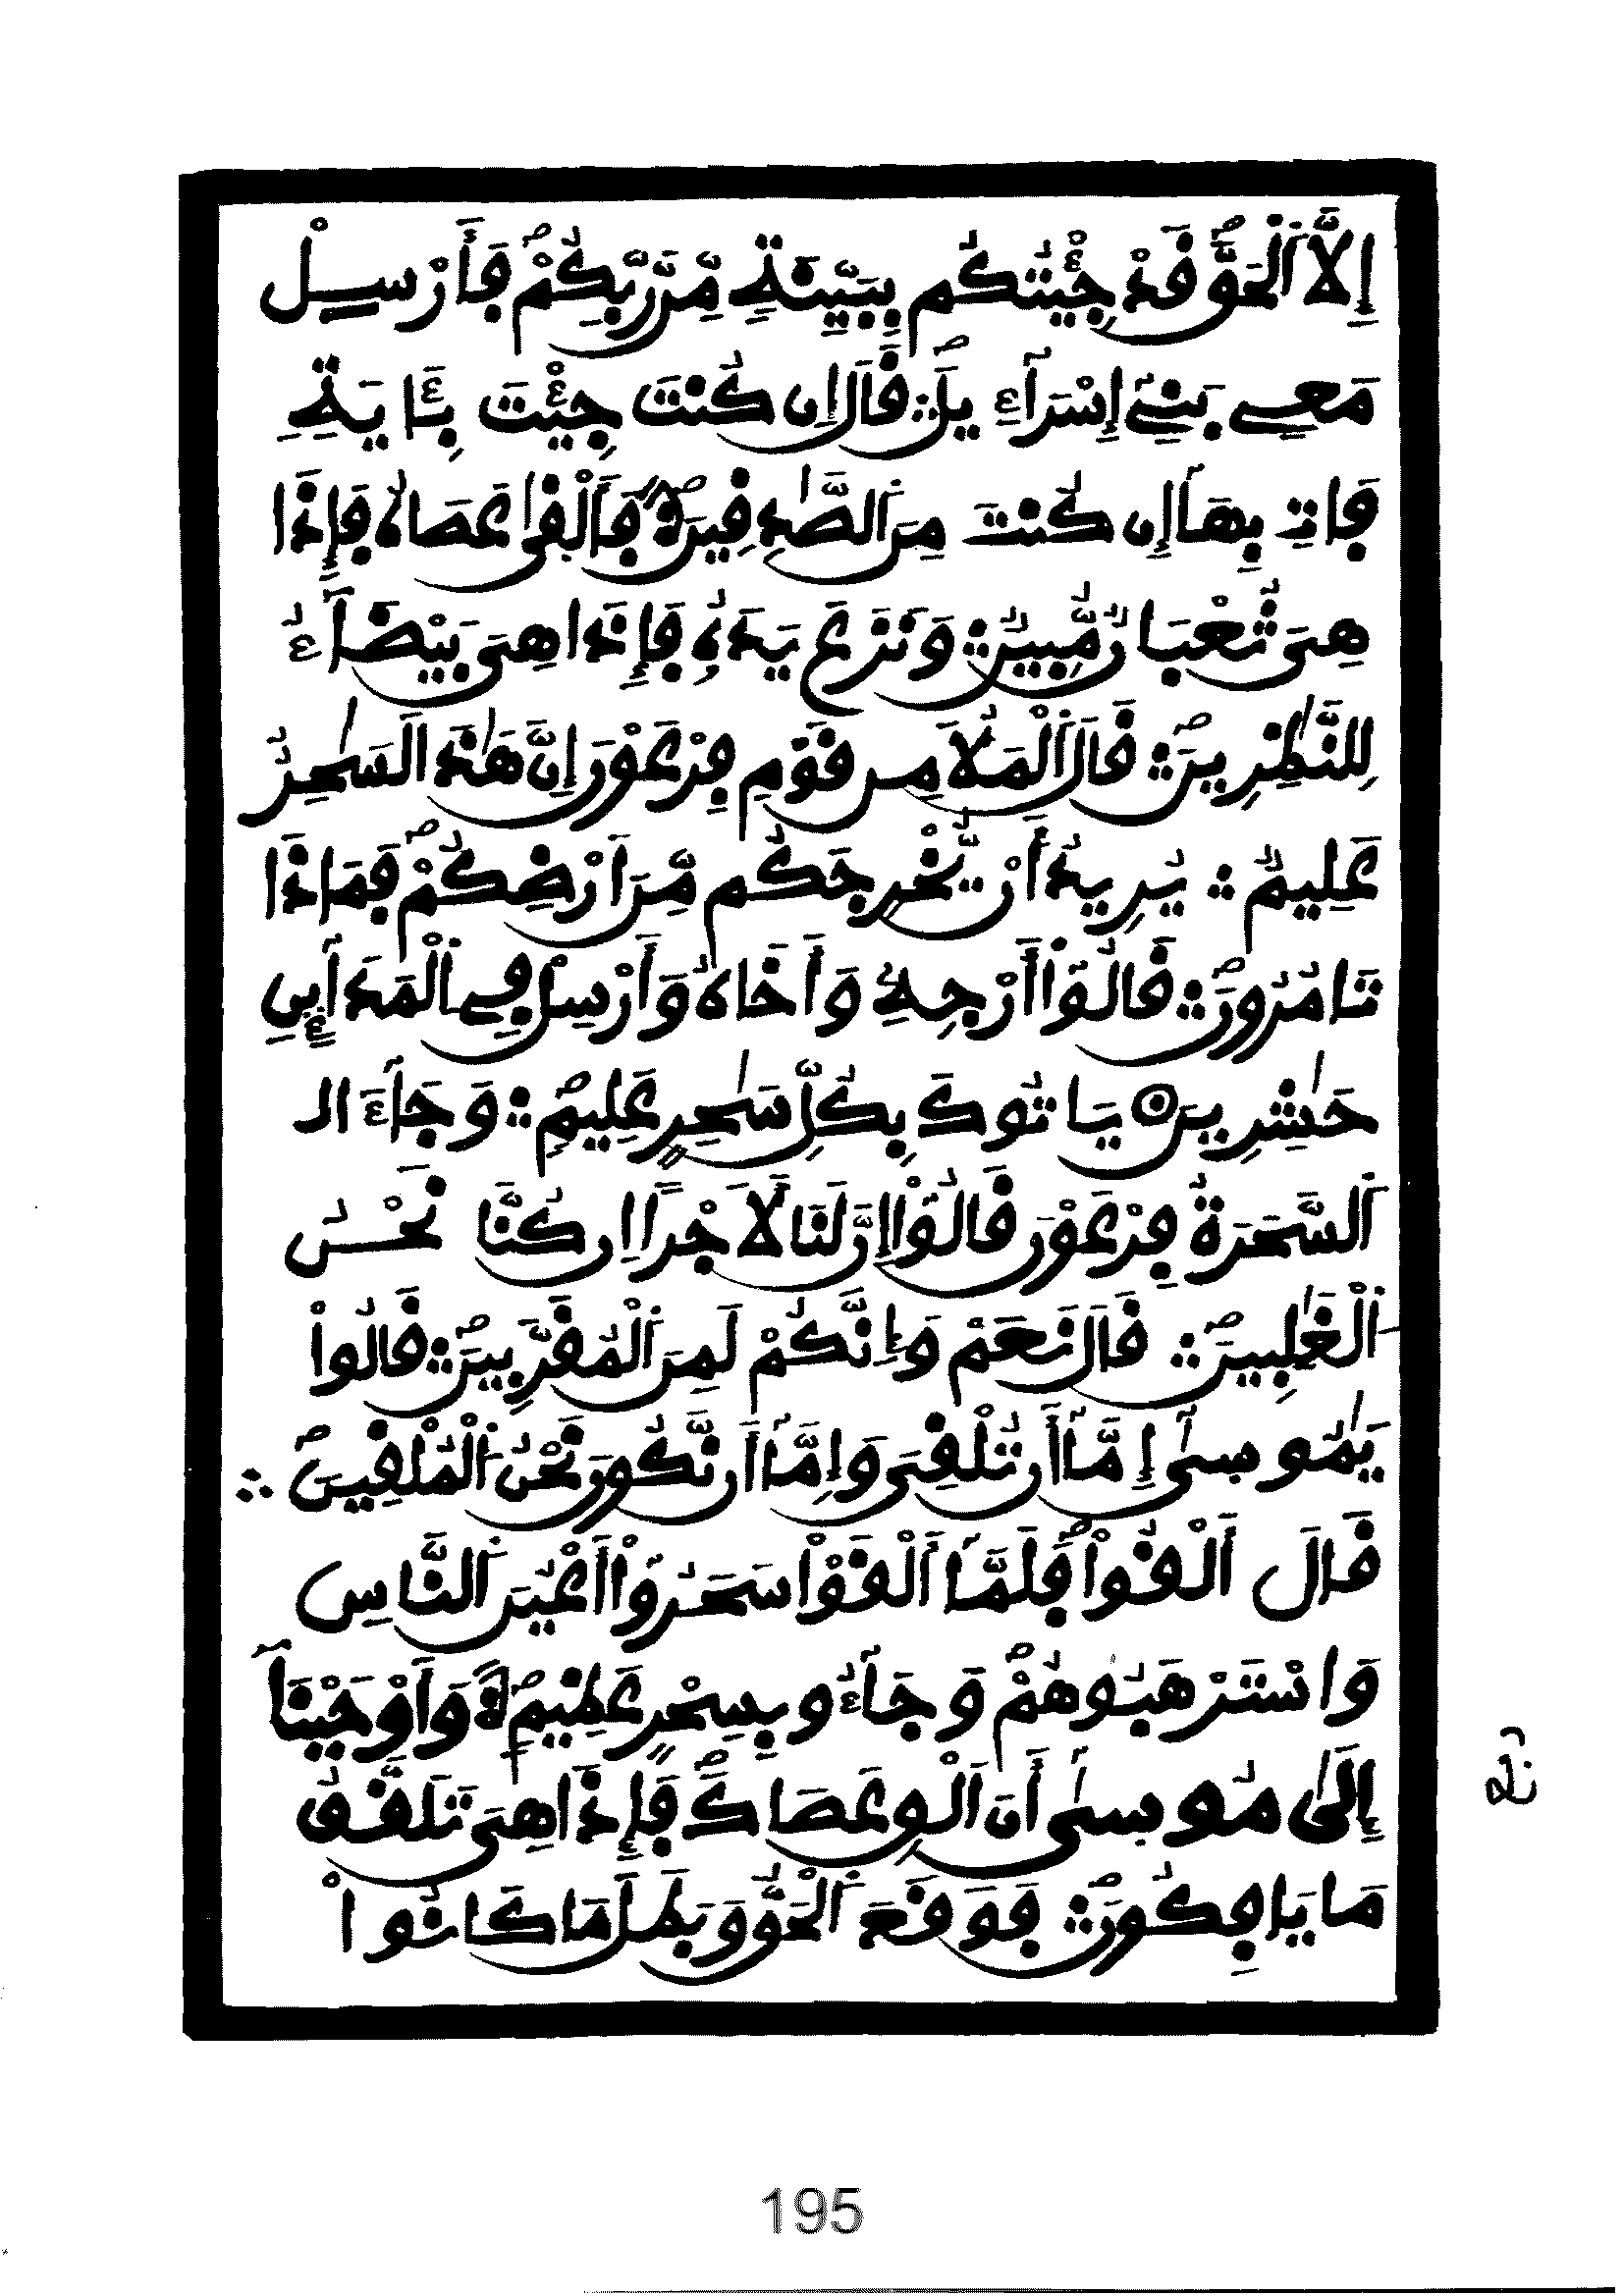 إِلَّا اَلْحَقَّ قَدْ جِئْتُكُم بِبَيِّنَةٍ مِّن رَّبِّكُمْ فَأَرْسِلْ
مَعِے بَنِے إِسْرَآءِيلَ ۞ قَالَ إِن كُنتَ جِئْتَ بِـَٔايَةٍ
فَاتِ بِهَا إِن كُنتَ مِنَ اَلصَّٰدِقِينَ ۞ فَأَلْقىٰ عَصَاهُ فَإِذَا
هِىَ ثُعْبَانٌ مُّبِينٌ ۞ وَنَزَعَ يَدَهُۥ فَإِذَا هِىَ بَيْضَآءُ
لِلنَّٰظِرِينَ ۞ قَالَ اَلْمَلَأُ مِن قَوْمِ فِرْعَوْنَ إِنَّ هَٰذَا لَسَٰحِرٌ
عَلِيمٌ ۞ يُرِيدُ أَنْ يُّخْرِجَكُم مِّنَ اَرْضِكُمْ فَمَاذَا
تَامُرُونَ ۞ قَالُوٓاْ أَرْجِهِۦ وَأَخَاهُ وَأَرْسِلْ فِے اِلْمَدَآئِنِ
حَٰشِرِينَ ۞ يَاتُوكَ بِكُلِّ سَٰحِرٍ عَلِيمٍ ۞ وَجَآءَ ال
اَلسَّحَرَةُ فِرْعَوْنَ قَالُوٓاْ إِنَّ لَنَا لَأَجْراً اِن كُنَّا نَحْنُ
اَلْغَٰلِبِينَ ۞ قَالَ نَعَمْ وَإِنَّكُمْ لَمِنَ اَلْمُقَرَّبِينَ ۞ قَالُواْ
يَٰمُوسىٰٓ إِمَّآ أَن تُلْقِىَ وَإِمَّآ أَن نَّكُونَ نَحْنُ اُلْمُلْقِينَ ۞
قَالَ أَلْقُواْ فَلَمَّآ أَلْقَوْاْ سَحَرُوٓاْ أَعْيُنَ اَلنَّاسِ
وَاسْتَرْهَبُوهُمْ وَجَآءُو بِسِحْرٍ عَظِيمٍ ۞ وَأَوْحَيْنَآ
إِلَىٰ مُوسىٰٓ أَنَ اَلْقِ عَصَاكَ فَإِذَا هِىَ تَلَقَّفُ
مَا يَافِكُونَ ۞ فَوَقَعَ اَلْحَقُّ وَبَطَلَ مَا كَانُواْ
195